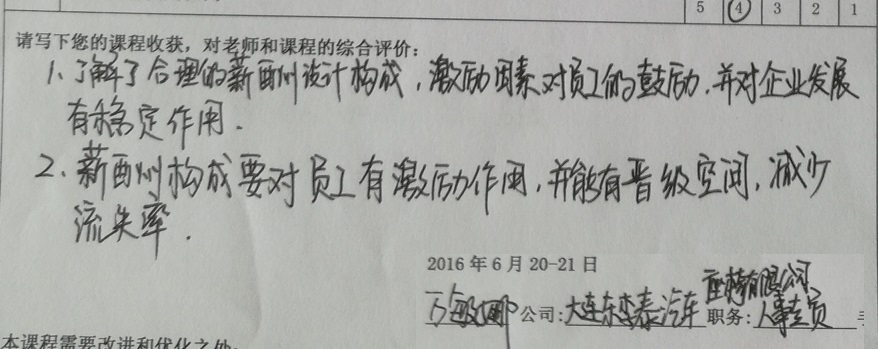 5 4 3 2 1
请写下您的课程收获，对老师和课程的综合评价：
1、了解了合理的薪酬设计构成，激励因素对员工的鼓励，并对企业发展
有稳定作用.
2、薪酬构成要对员工有激励作用，并能有晋级空间，减少
流失率.
2016 年 6 月 20-21 日
座椅有限公司
公司:大连东李泰汽车 职务:人事专员
本课程需要改进和优化之处